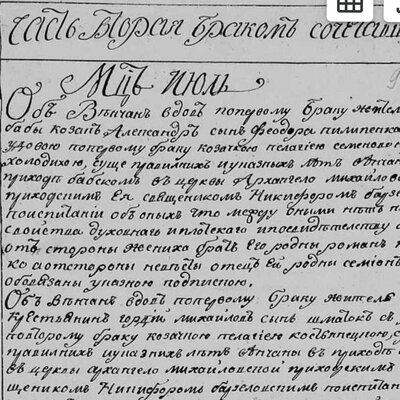 Часть Вторая бракомъ сочетав
Мцъ июль
Объ Вѣнчан вдовъ попервому браку жител
бабы козакъ Александръ сынъ Феодора пилипенка
удовою попервому браку козачкою пелагиею семеновою
холодною, суще правилнихъ иуказныхъ лѣтъ вѣнчан
приходѣ бабскомъ въ церквы Архангело михайлов
приходскимъ Ея священикомъ Никифоромъ
поиспитаніи объ оныхъ что между оными нѣтъ
свойства духовнаго иплотскаго ипосвидѣтелству
отъ стороны жениха братъ Его родны романъ
ко а отстороны невѣсты отецъ Ей родны семіонъ
обовязаны указною подпискою.
Объ Вѣнчан вдовъ попервому браку жителъ
крестьянинъ гордій михайловъ сынъ шматокъ съ
повторому браку козачкою пелагиею костянецкою,
правилнихъ иуказнихъ лѣтъ вѣнчаны въ приходѣ
въ церквы архангело михайловской приходскимъ
щеникомъ Никифоромъ поиспитан